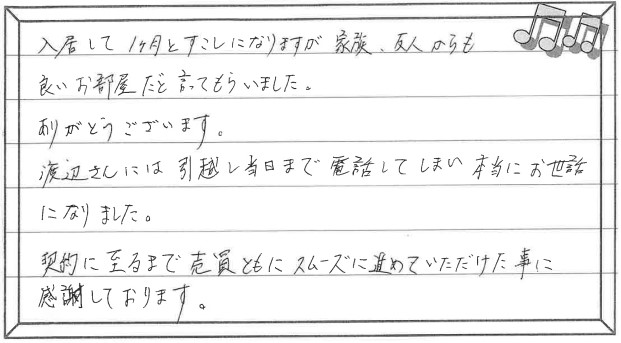 入居して1ヶ月とすこしになりますが 家族、友人からも
良いお部屋だと言ってもらいました。
ありがとうございます。
渡辺さんには引越し当日まで電話してしまい本当にお世話
になりました。
契約に至るまで売買ともにスムーズに進めていただけた事に
感謝しております。